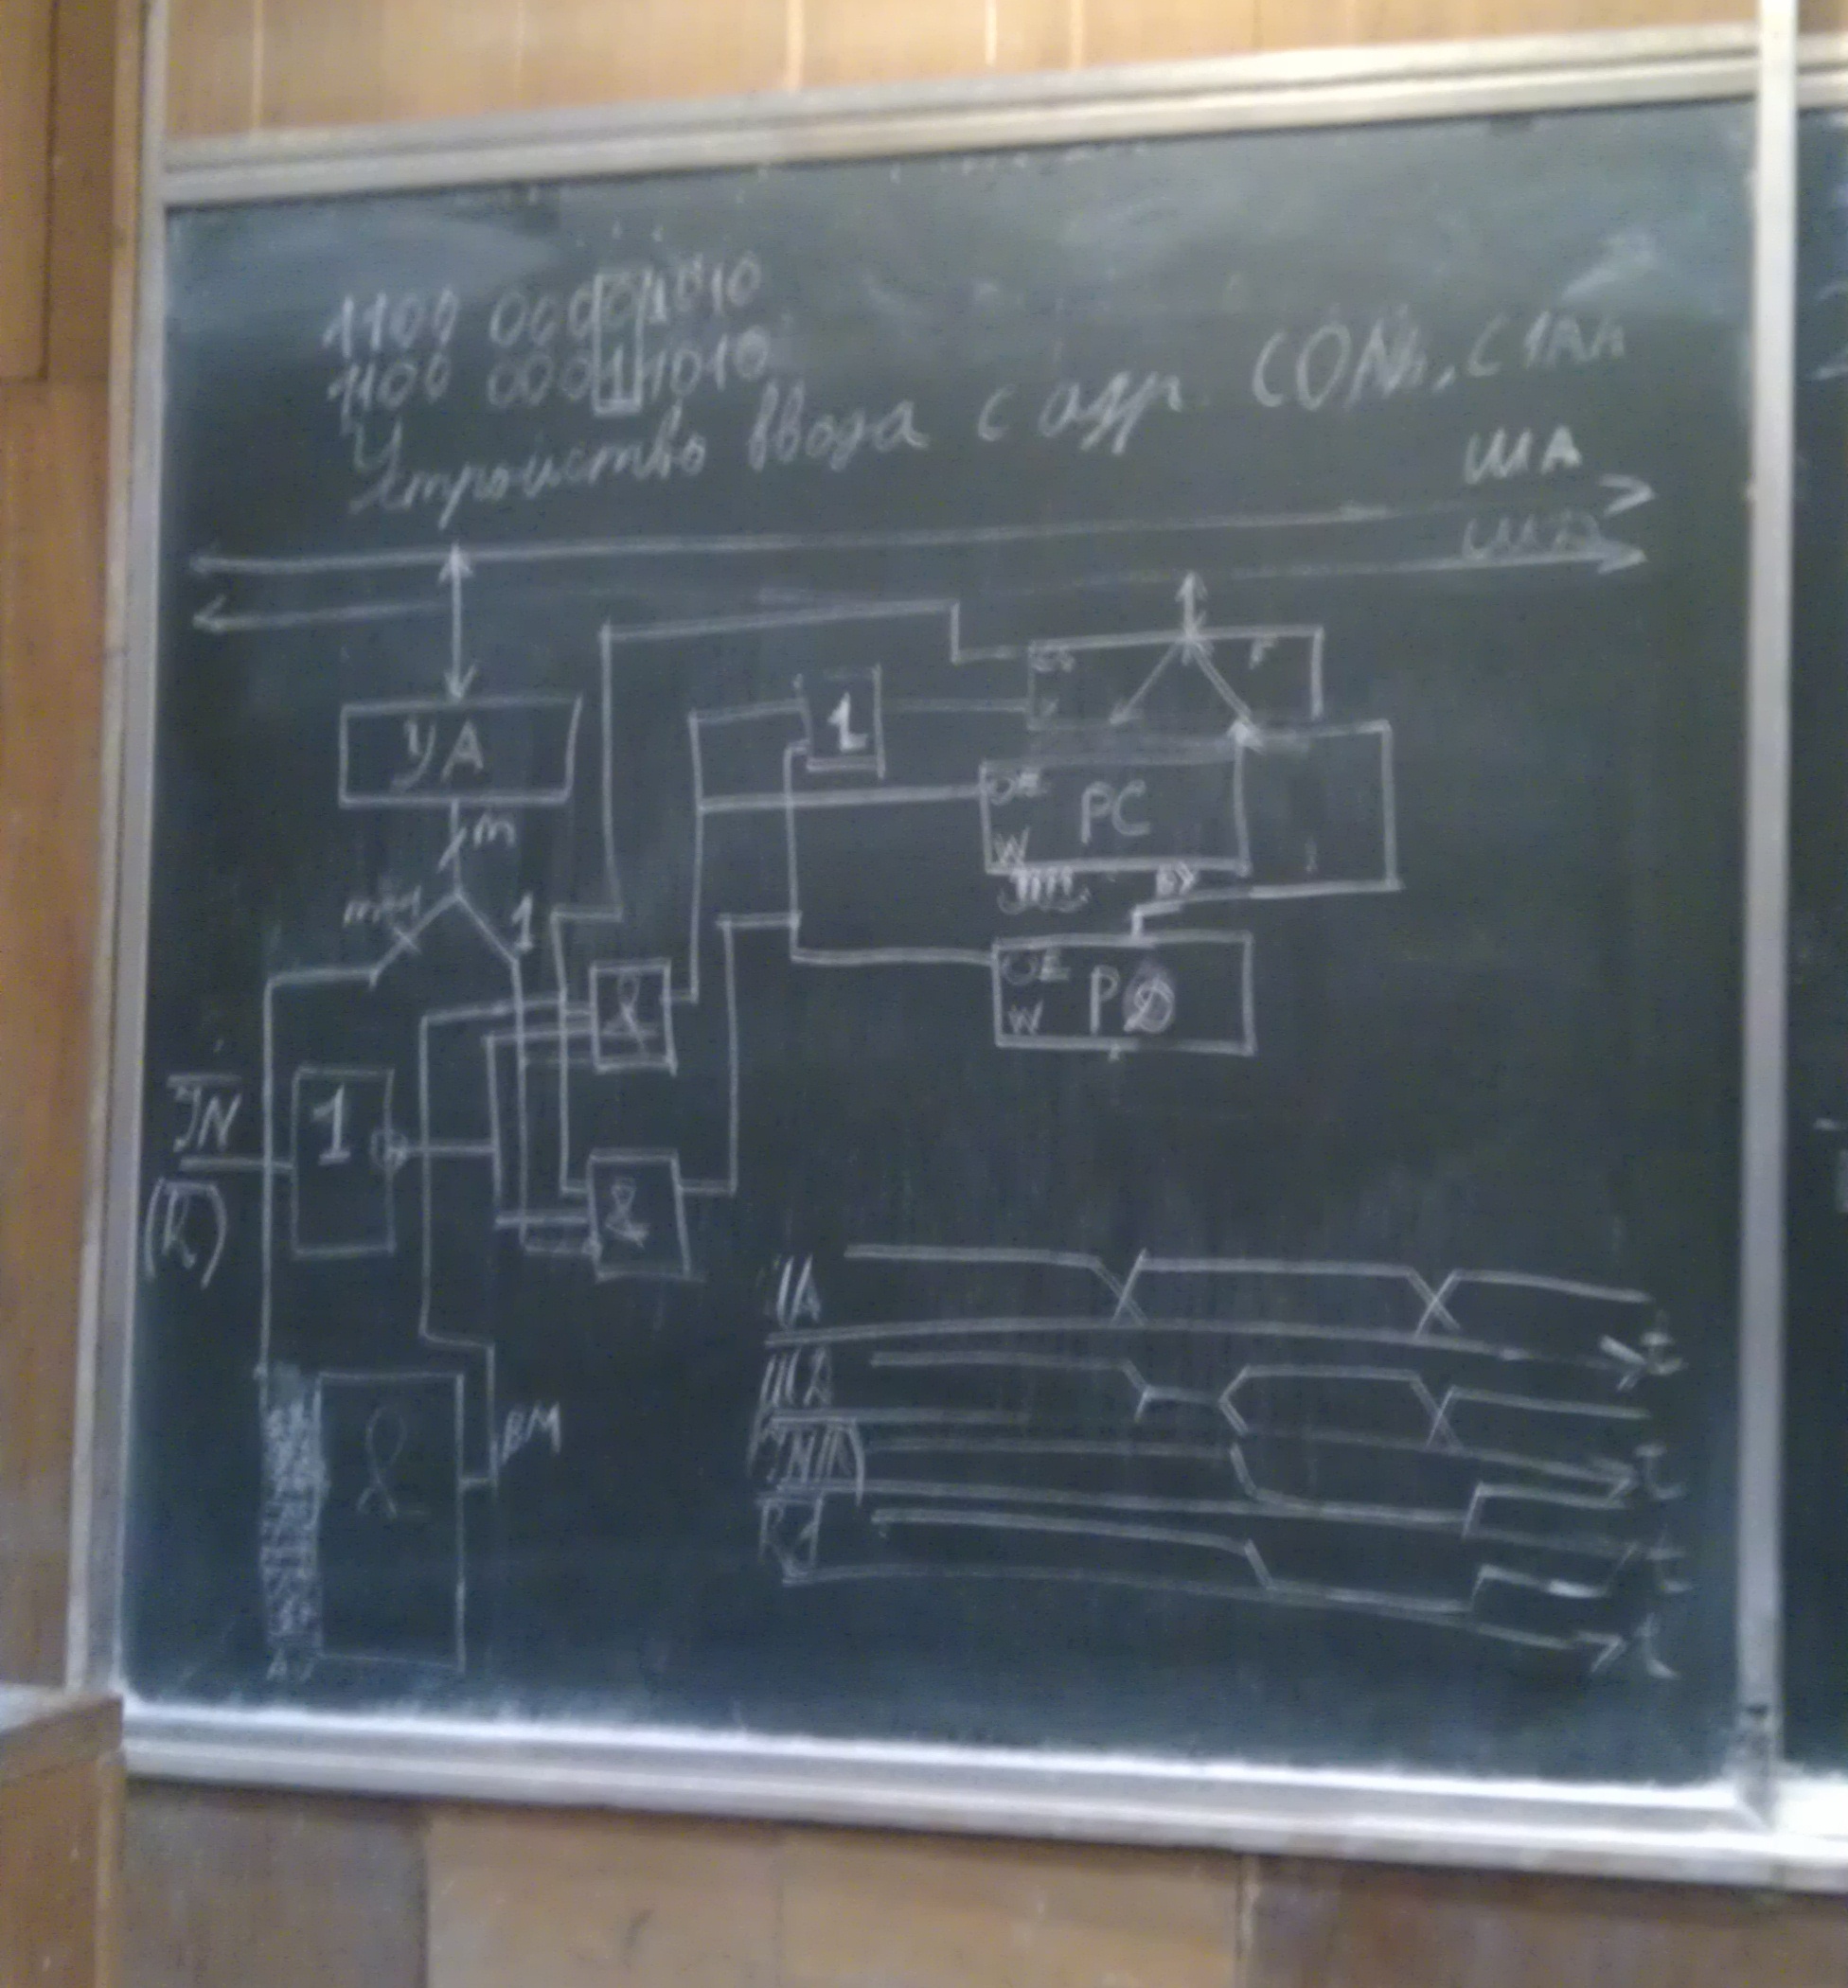 1100 0000 1010
1100 0001 1010
Устройство ввода с адр. C0Ah, C1Ah
ША
ШД
УА
m
m-1
1
1
CS
OE
PC
W
&
OE
РД
W
IN
1
(R)
&
&
BM
ША
t
ШД
t
IN(R)
t
t